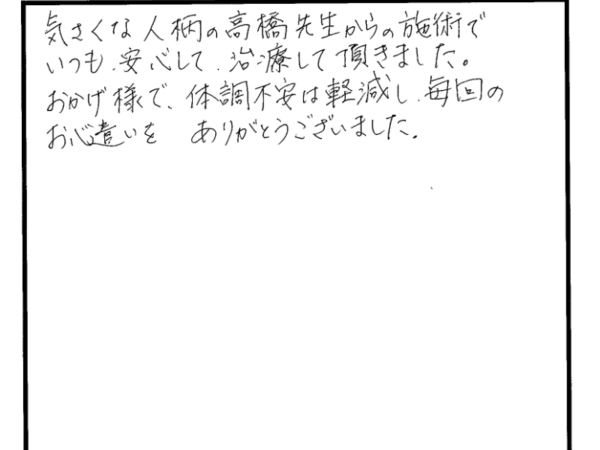 気さくな人柄の高橋先生からの施術で
いつも、安心して、治療して頂きました。
おかげ様で、体調不安は軽減し、毎回の
お心遣いを　ありがとうございました。